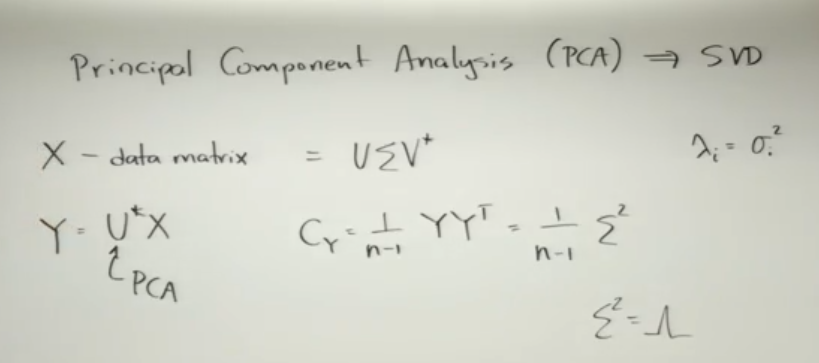 Principal Component Analysis (PCA) ⇒ SVD
X - data matrix = UΣV* λᵢ = σᵢ²
Y = U*X C_Y = 1/(n-1) YYᵀ = 1/(n-1) Σ²
↑ PCA
Σ² = Λ